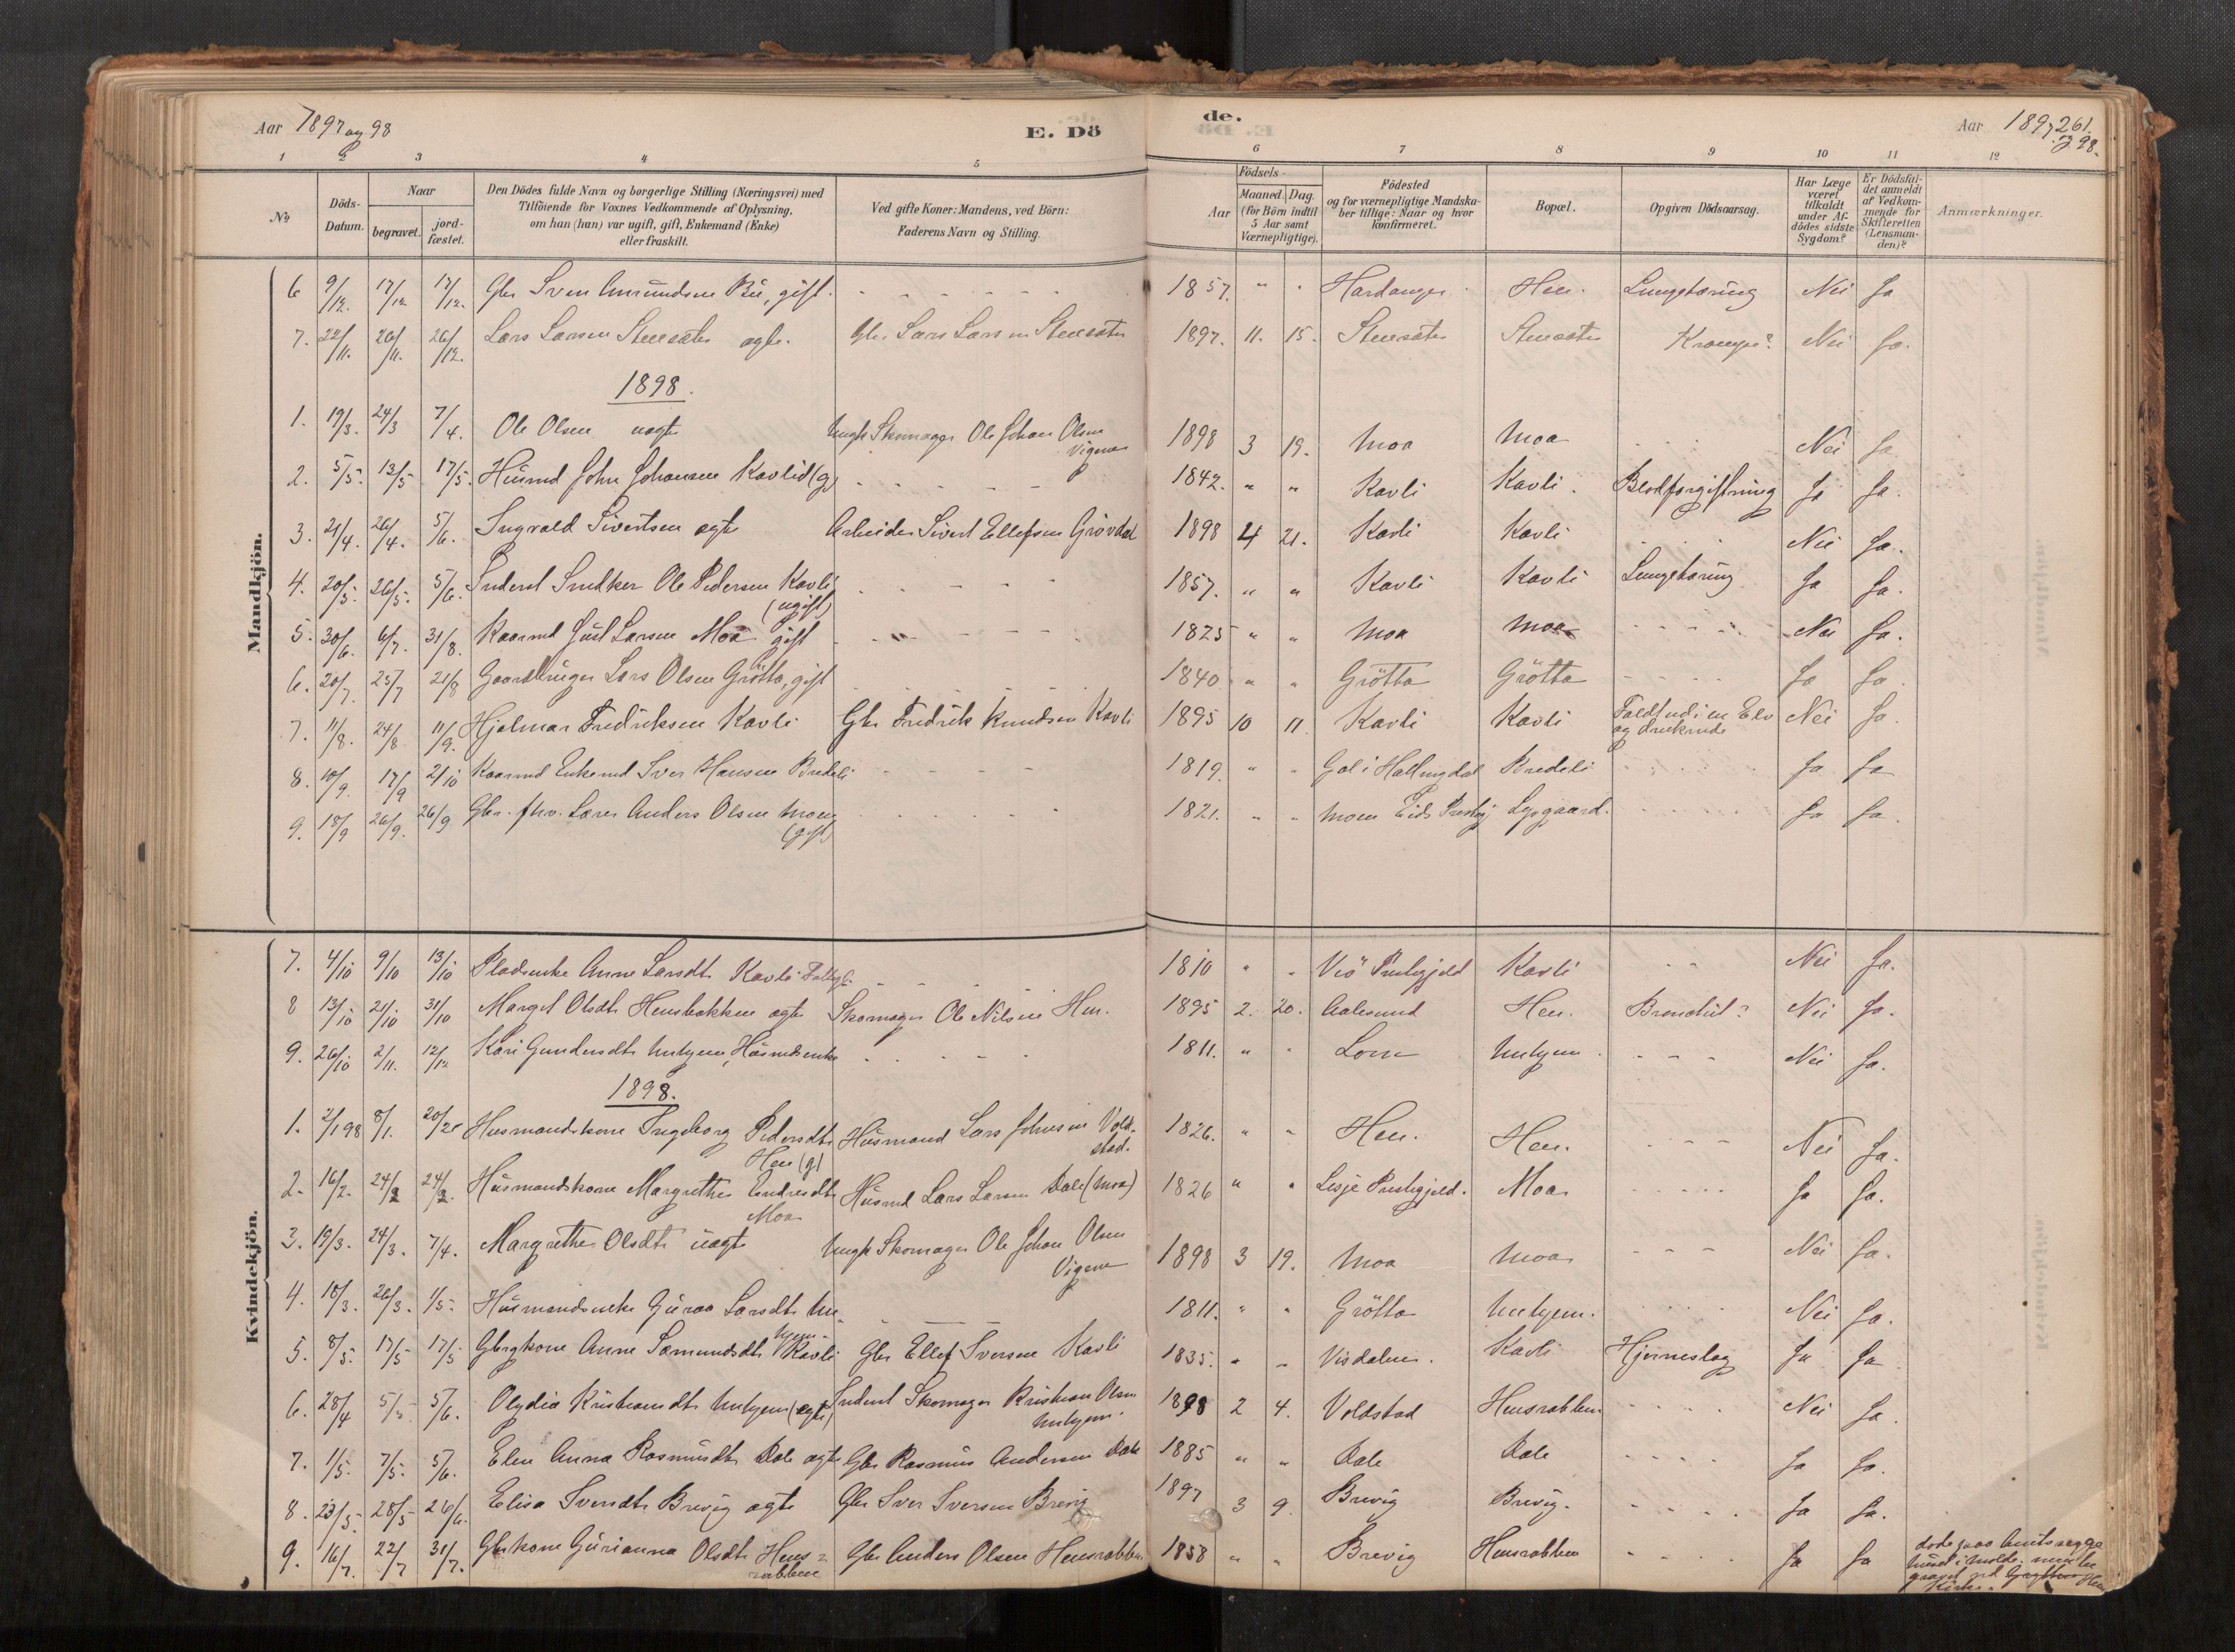 Aar 1897 og 98
E. Dö
de.
Aar 1897 og 98.
261.
1 2 3 4 5 6 7 8 9 10 11 12
No
Döds-Datum.
Naar
begravet. jord-fæstet.
Den Dödes fulde Navn og borgerlige Stilling (Næringsvei) med
Tilföiende for Voxnes Vedkommende af Oplysning,
om han (hun) var ugift, gift, Enkemand (Enke)
eller fraskilt.
Ved gifte Koner: Mandens, ved Börn:
Faderens Navn og Stilling.
Födsels-
Aar Maaned. Dag.
(for Börn indtil
5 Aar samt
Værnepligtige).
Födested
og for værnepligtige Mandska-
ber tillige: Naar og hvor
konfirmeret.
Bopæl.
Opgiven Dödsaarsag.
Har Læge
været
tilkaldt
under Af-
dödes sidste
Sygdom?
Er Dödsfal-
det anmeldt
af Vedkom-
mende for
Skifteretten
(Lensman-
den)?
Anmærkninger.
Mandkjön.
6 9/12. 17/12 17/12. Gbr Sven Amundsen Bu, gift. 1857. " " Hardanger Hen. Lungetæring Nei Ja
7. 22/11. 26/11. 26/12. Lars Larsen Stensæter ægte. Gbr. Lars Larsen Stensæter 1897. 11. 15. Stensæter Stensæter Krampe? Nei Ja.
1898.
1. 19/3. 24/3 7/4. Ole Olsen uægte Ungk Skomager Ole Johan Olsen Vigen 1898 3 19. Moa Moa Nei Ja
2. 5/5. 13/5 17/5. Husmd John Johansen Kavlid (g) 1842. " " Kavli Kavli. Blodforgiftning Ja Ja.
3. 21/4. 26/4. 5/6. Ingvald Sivertsen ægte Arbeider Sivert Ellefsen Grövdal 1898 4 21. Kavli Kavli Nei Ja.
4. 20/5. 26/5. 5/6. Inderst Snedker Ole Pedersen Kavli (ugift) 1857. " " Kavli Kavli Lungetæring Ja Ja.
5. 30/6. 6/7. 31/8. Kaarmd Just Larsen Moa gift 1825 " " Moa Moa Nei Ja.
6. 20/7. 25/7 21/8 Gaardbruger Lars Olsen Grötta, gift 1840. " " Grötta Grötta Ja Ja.
7. 11/8. 24/8 11/9. Hjalmar Fredriksen Kavli Gbr Fredrik Knudsen Kavli 1895 10 11. Kavli Kavli Faldt ud i en Elv og druknede Nei Ja.
8. 10/9. 17/9 2/10 Kaarmd Enkemd Iver Hansen Bredeli 1819. " " Gol i Hallingdal Bredeli Ja Ja
9. 18/9 26/9. 26/9 Gbr. fhv. Lærer Anders Olsen Moen (gift) 1821. " " Moen Eids Prestgj Lysgaard. Ja Ja.
Kvindekjön.
7. 4/10 9/10 13/10 Pladsenke Anne Larsdt. Kavli 1810 " " Viö Prestegjeld Kavli Nei Ja.
8 13/10 21/10 31/10 Marget Olsdt. Hensbakken ægte Skomager Ole Nilsen Hen. 1895 2. 20. Aalesund Hen. Bronchit? Nei Ja.
9. 26/10 2/11. 12/12 Kari Gundersdt. Unhjem, Husmdsenke 1811. " " Lom Unhjem Nei Ja.
1898.
1. 2/1 98 8/1. Husmandskone Ingeborg Pedersdt. Hen (g) Husmand Lars Johnsen Voldstad. 1826. " " Hen. Hen. Nei Ja.
2. 16/2. 24/2 24/2. Husmandskone Margrethe Endresdt. Moa Husmd Lars Larsen Dale (Moa) 1826 " " Lesje Prestegjeld. Moa Ja Ja.
3. 19/3. 24/3. 7/4. Margrethe Olsdt. uægte Ungk Skomager Ole Johan Olsen Vigen 1898 3 19. Moa Moa Nei Ja.
4. 18/3. 26/3. 1/5. Husmandsenke Guroa Larsdt. Unhjem 1811. " " Grötta Unhjem. Nei Ja.
5. 8/5. 17/5 17/5 Gbrgkone Anne Sæmundsdt. Kavli Gbr Ellef Iversen Kavli 1835. " " Visdalen. Kavli Hjerneslag Ja Ja
6. 28/4 5/5 5/6. Olydia Kristiansdt. Unhjem (ægte) Inderst Skomager Kristian Olsen Unhjem. 1898 2 4. Voldstad Hensrabben Nei Ja.
7. 1/5. 7/5. 5/6. Elen Anna Rasmusdt. Dale ægte Gbr Rasmus Andersen Dale 1885 " " Dale Dale Ja Ja.
8. 23/5. 28/5 26/6. Elisa Iversdt. Brevig ægte Gbr Iver Iversen Brevig 1897 3 9. Brevig Brevig. Ja Ja.
9. 16/7. 22/7 31/7. Gbrkone Gurianna Olsdt. Hensrabben Gbr Anders Olsen Hensrabben 1858 " " Brevig Hensrabben Ja Ja döde paa Amtssygehuset i Molde. ved Hen Kirke.